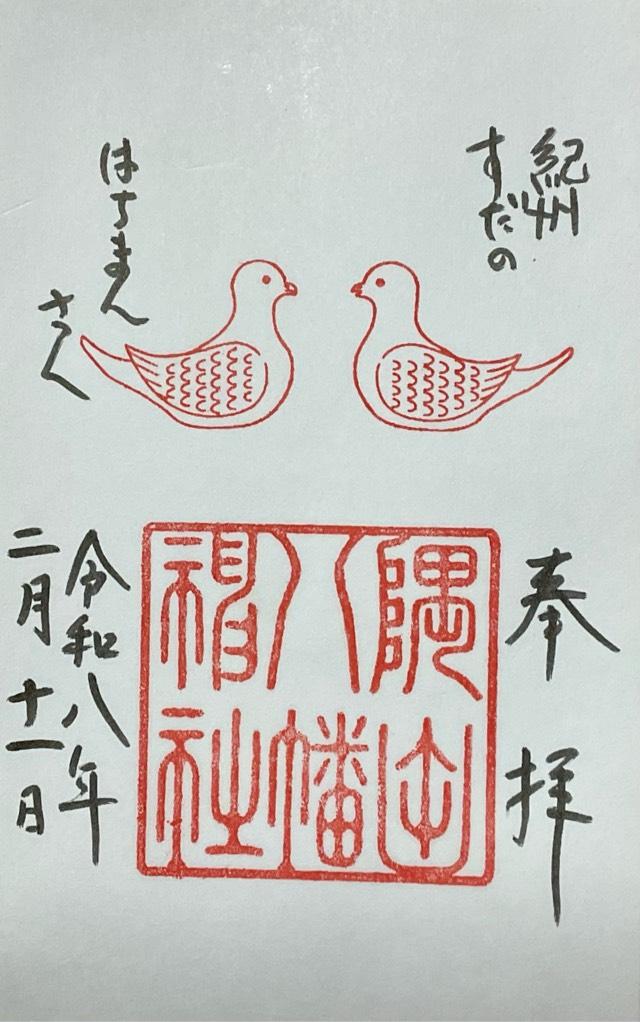 紀州
すだの
はちまん
さん
奉拝
隅田
八幡
神社
令和八年
二月十一日